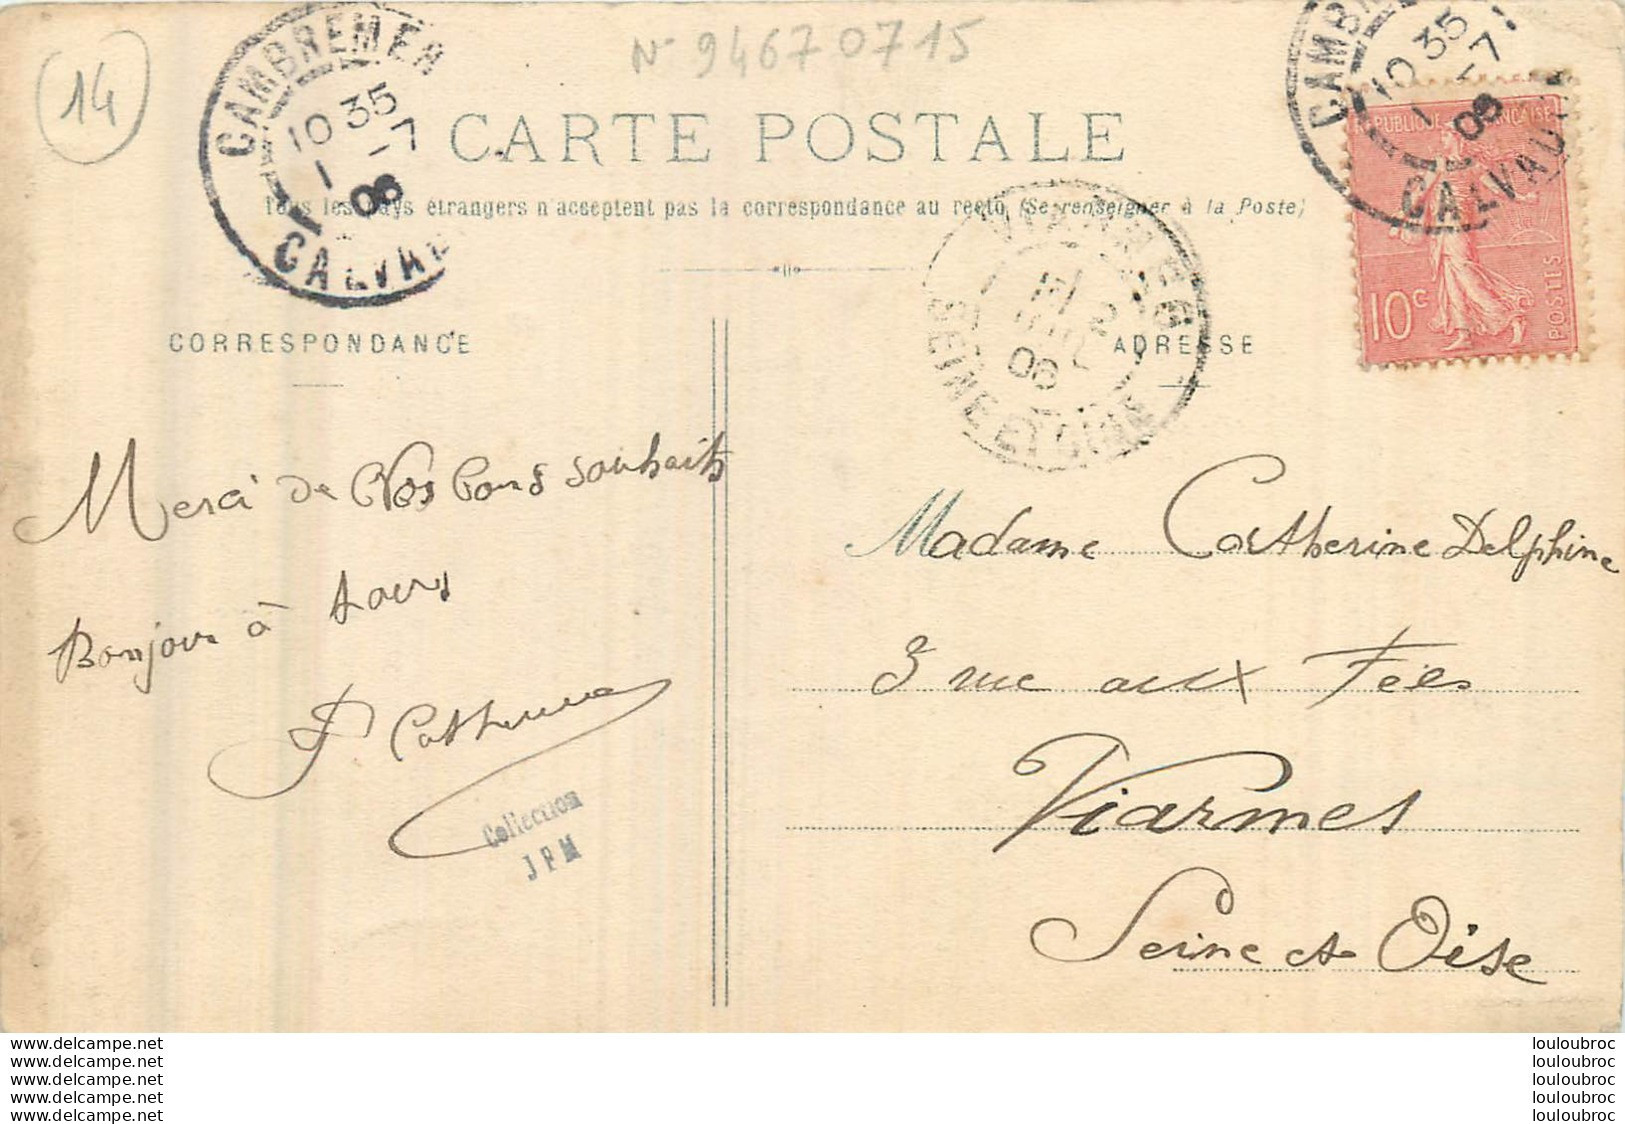 14
N- 94670715
CAMBREMER
10 35
1 -7
06
CALVA
CARTE POSTALE
Tous les pays étrangers n'acceptent pas la correspondance au recto (Se renseigner à la Poste)
CAMB
10 35
1 -7
06
CALVADOS
REPUBLIQUE FRANÇAISE
10c
POSTES
VIARMES
2
06
SEINE ET OISE
CORRESPONDANCE
ADRESSE
Merci de Vos bons souhaits
Bonjour à tous
Collection
JPM
Madame Catherine Delphine
3 rue aux Fées
Viarmes
Seine et Oise
www.delcampe.net
www.delcampe.net
www.delcampe.net
www.delcampe.net
www.delcampe.net
louloubroc
louloubroc
louloubroc
louloubroc
louloubroc